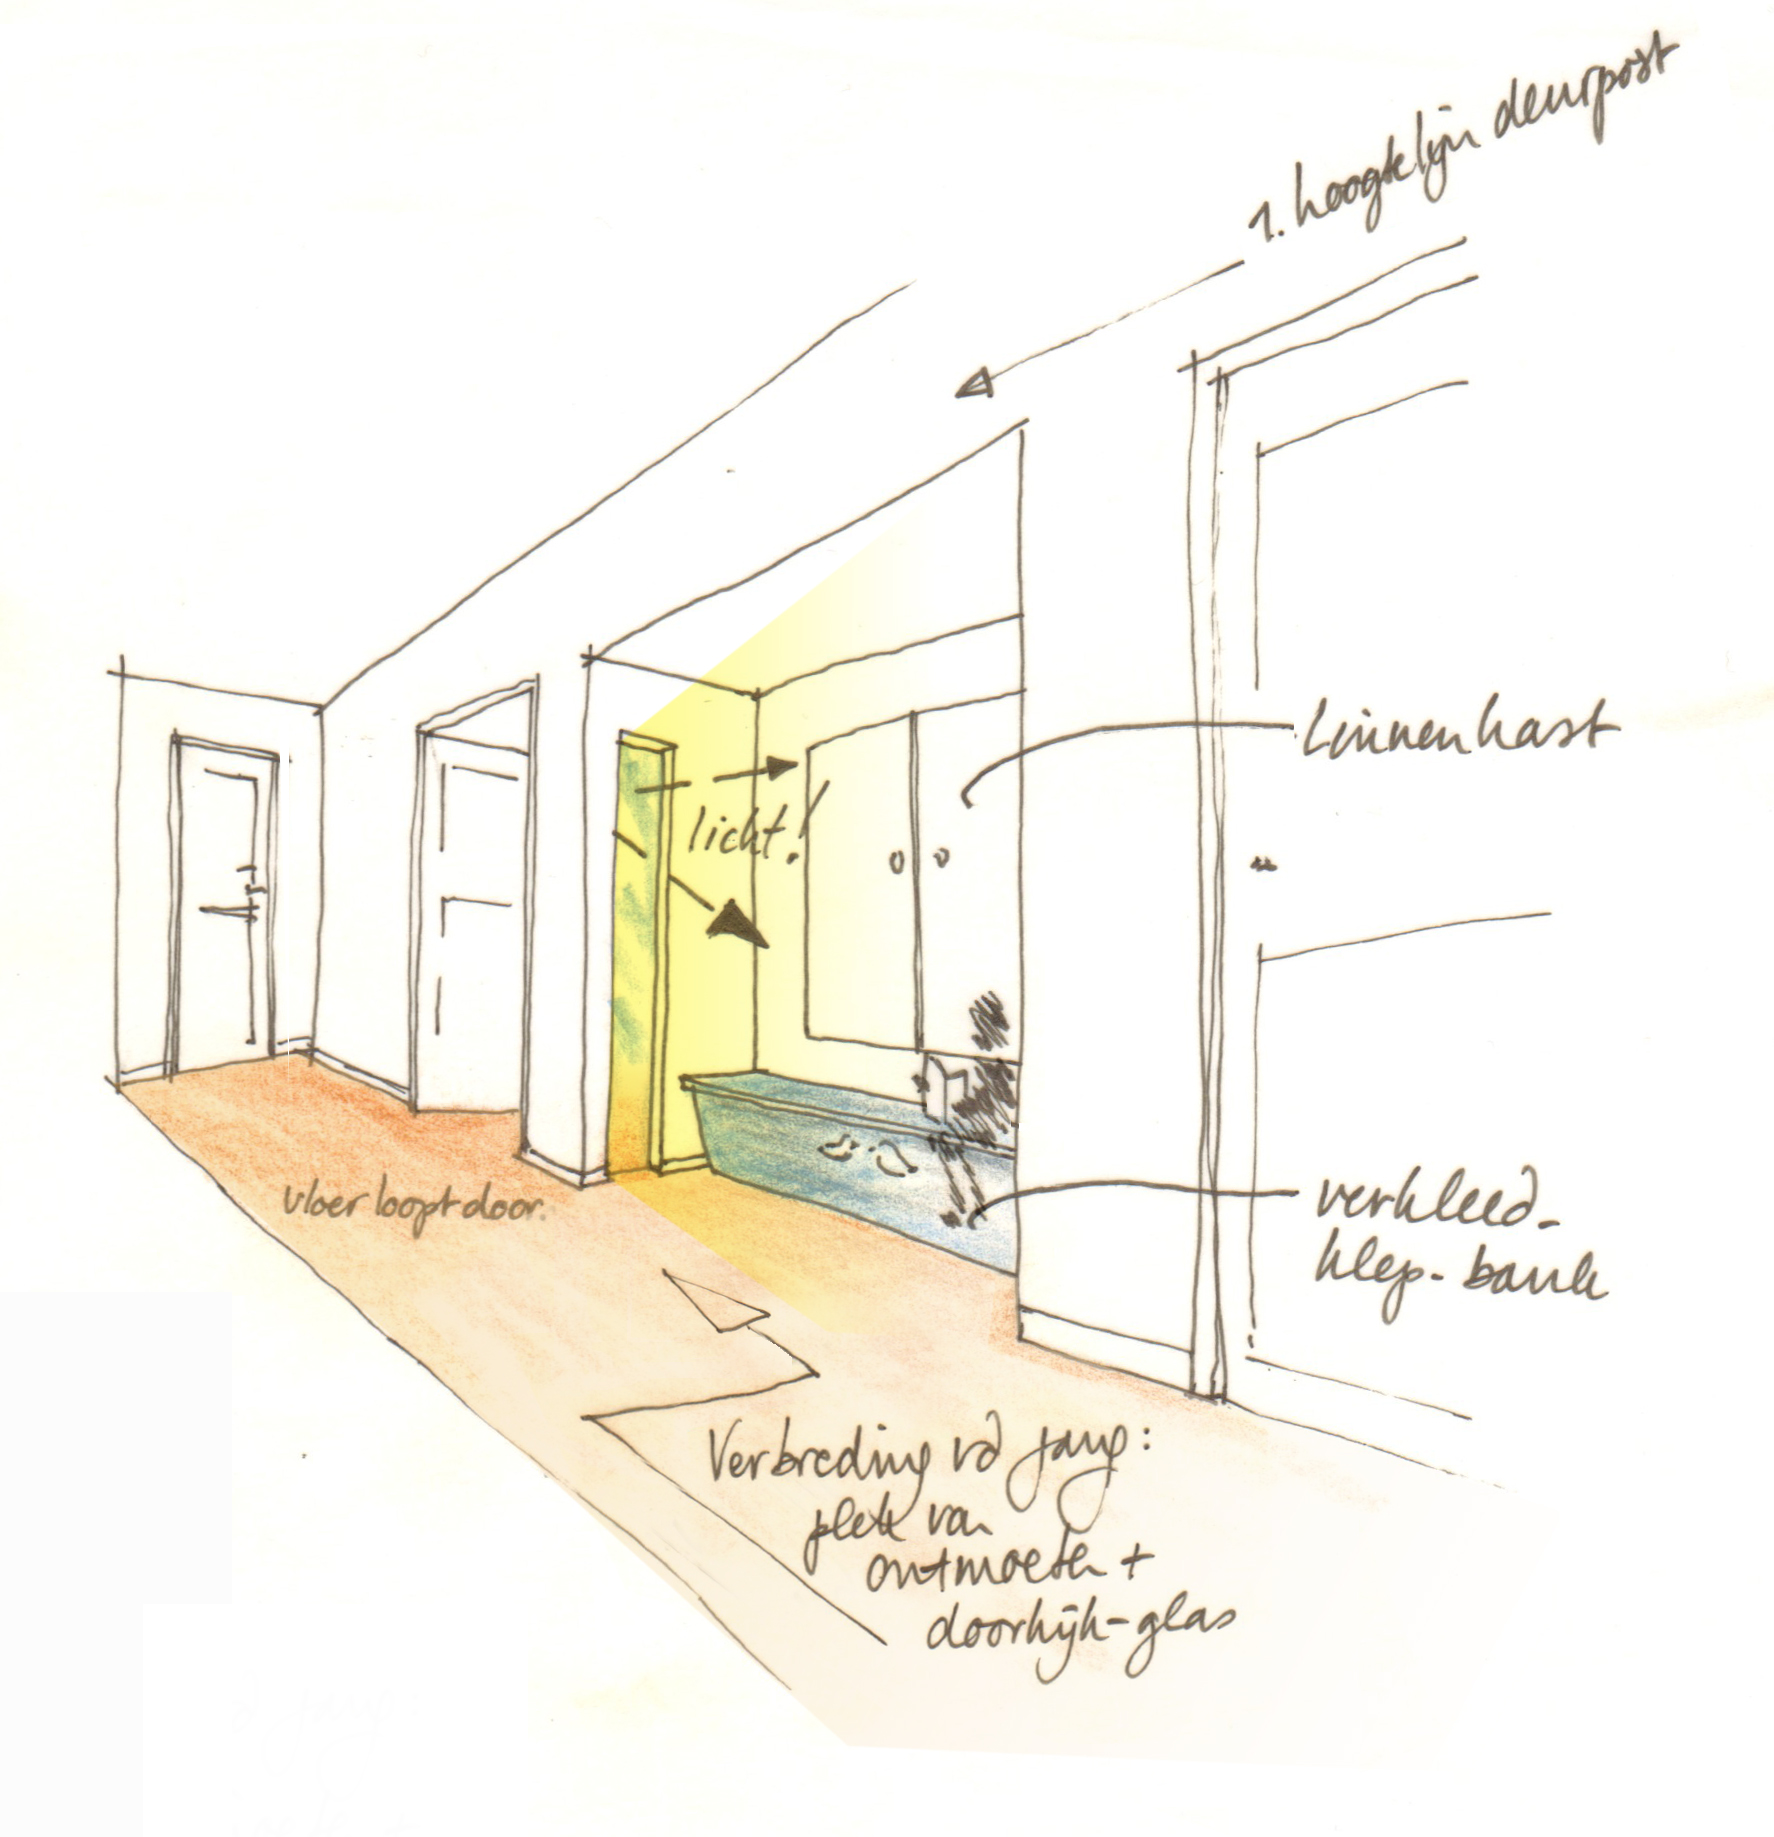 1. hoogtelijn deurpost
Linnenkast
licht!
verkleed-
klep-bank
vloer loopt door.
Verbreding vd gang:
plek van
ontmoeten +
doorkijk-glas